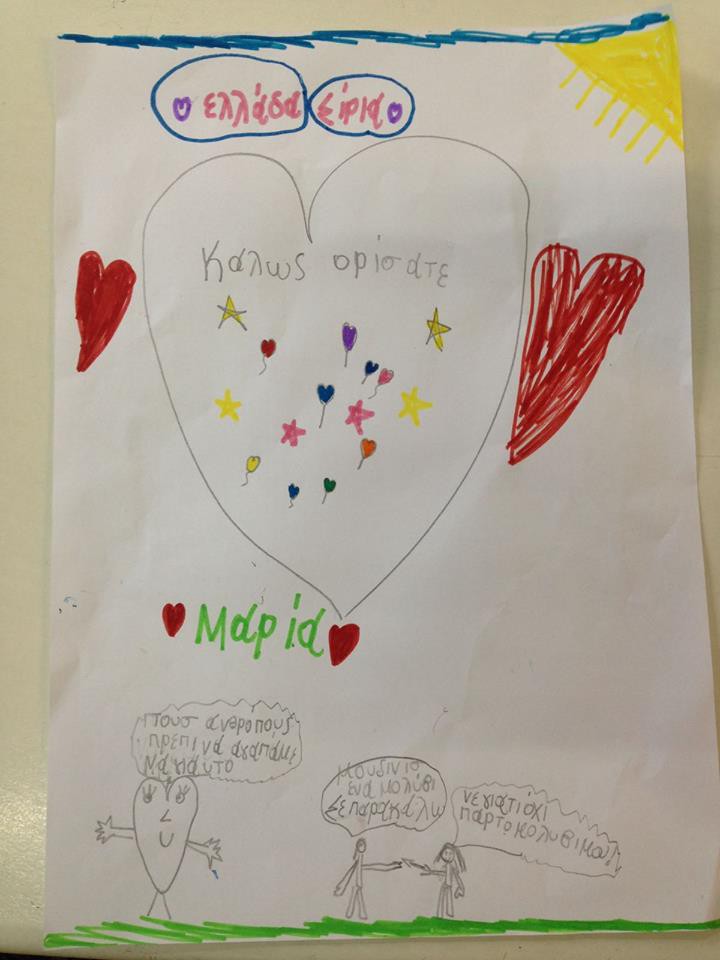 ελλάδα Σίρια
Καλως ορίσατε
Μαρία
Τουσ ανθροπους
πρεπι να αγαπάμε
Να για υτο
Μου δινισ
ενα μολύβι
Σε παρακαλω
νε γιατι όχι
παρτο μολυβι μου!